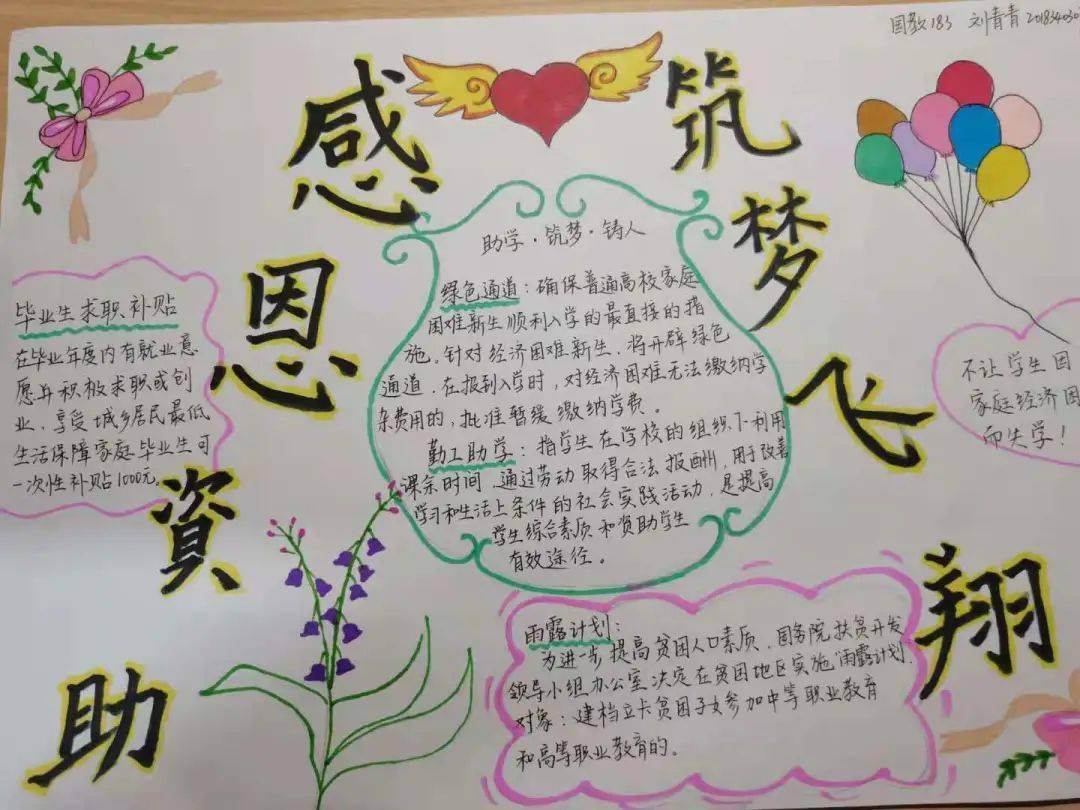 国教183 刘青青 201834030
感恩資助
筑梦飞翔
助学·筑梦·铸人
绿色通道：确保普通高校家庭
困难新生顺利入学的最直接的措
施。针对经济困难新生，将开辟绿色
通道，在报到入学时，对经济困难无法缴纳学
杂费用的，批准暂缓缴纳学费。
勤工助学：指学生在学校的组织下利用
课余时间，通过劳动取得合法报酬，用于改善
学习和生活上条件的社会实践活动，是提高
学生综合素质和资助学生
有效途径。
毕业生求职补贴
在毕业年度内有就业意
愿并积极求职或创
业，享受城乡居民最低
生活保障家庭毕业生可
一次性补贴1000元。
不让学生因
家庭经济困
而失学！
雨露计划：
为进一步提高贫困人口素质，国务院扶贫开发
领导小组办公室决定在贫困地区实施"雨露计划，
对象：建档立卡贫困子女参加中等职业教育
和高等职业教育的。